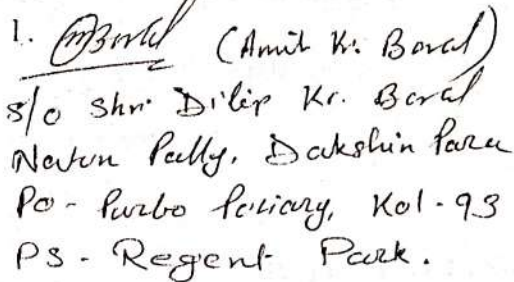 1. ABoral (Amit Kr. Boral)
S/o Shri Dilip Kr. Boral
Natun Pally, Dakshin Para
Po - Purbo Putiary, Kol - 93
PS - Regent Park.